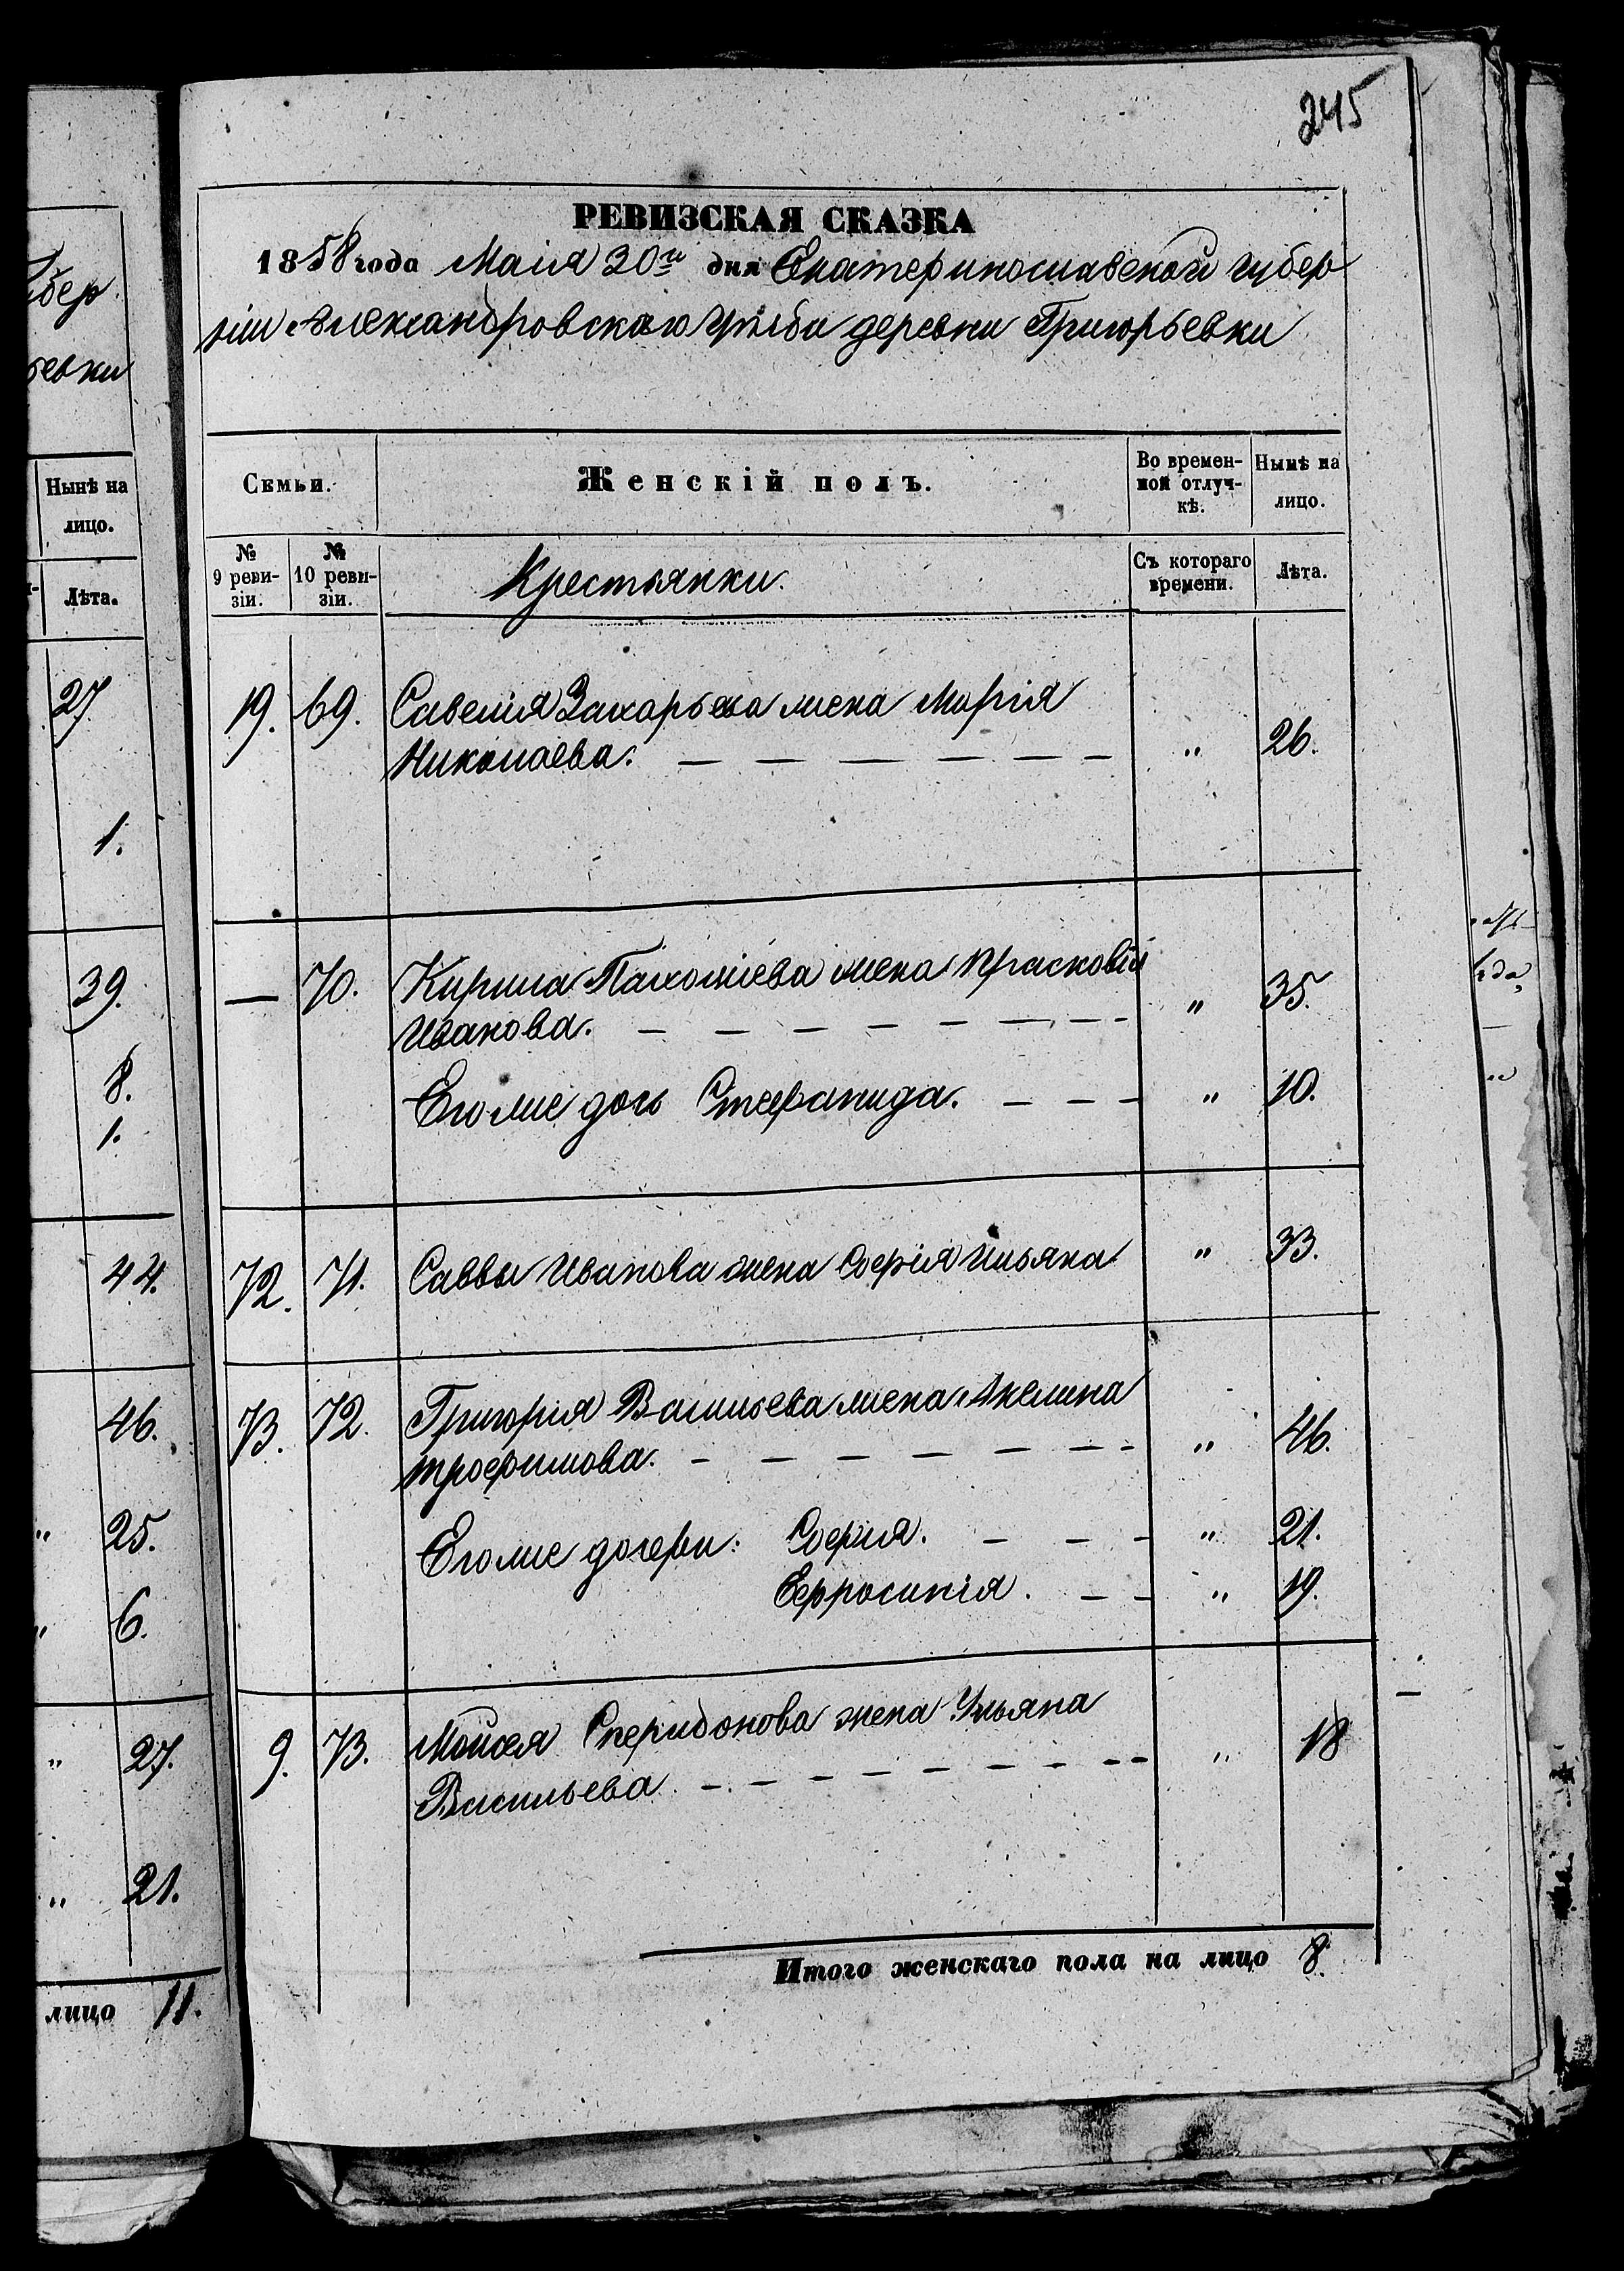 245
РЕВИЗСКАЯ СКАЗКА
1858 года Маія 30го дня Екатеринославской губер
ніи Александровскаго уѣзда деревни Григорьевки
Семьи.
Женскій полъ.
Во времен-
ной отлуч-
кѣ.
Нынѣ на
лицо.
№
9 реви-
зіи.
№
10 реви-
зіи.
Крестьянки.
Съ котораго
времени.
Лѣта.
19. 69. Савелія Захарьева жена Марія
Николаева. — — — — — — " 26.
— 70. Кирила Пахоміева жена Прасковія
Иванова. — — — — — — — — " 35.
Его же дочь Стефанида. — — — " 10.
72. 71. Саввы Иванова жена Софія Ильина " 33.
73. 72. Григорія Васильева жена Акелина
Трофимова. — — — — — — — " 46.
Его же дочери: Софія. — — — " 21.
Ефросинія. — — " 19.
9. 73. Мойсея Спиридонова жена Ульяна
Васильева — — — — — — — — — " 18
Итого женскаго пола на лицо 8.
губер
ьевки
Нынѣ на
лицо.
Лѣта.
27.
1.
39.
8.
1.
44.
46.
" 25.
" 6.
" 27.
" 21.
лицо 11.